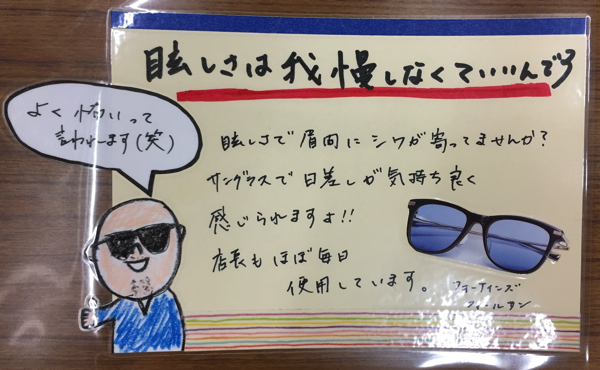 眩しさは我慢しなくていいんです
よく怖いって
言われます(笑)
眩しさで眉間にシワが寄ってませんか?
サングラスで日差しが気持ち良く
感じられますよ!!
店長もほぼ毎日
使用しています。
フォーナインズ
フィールサン